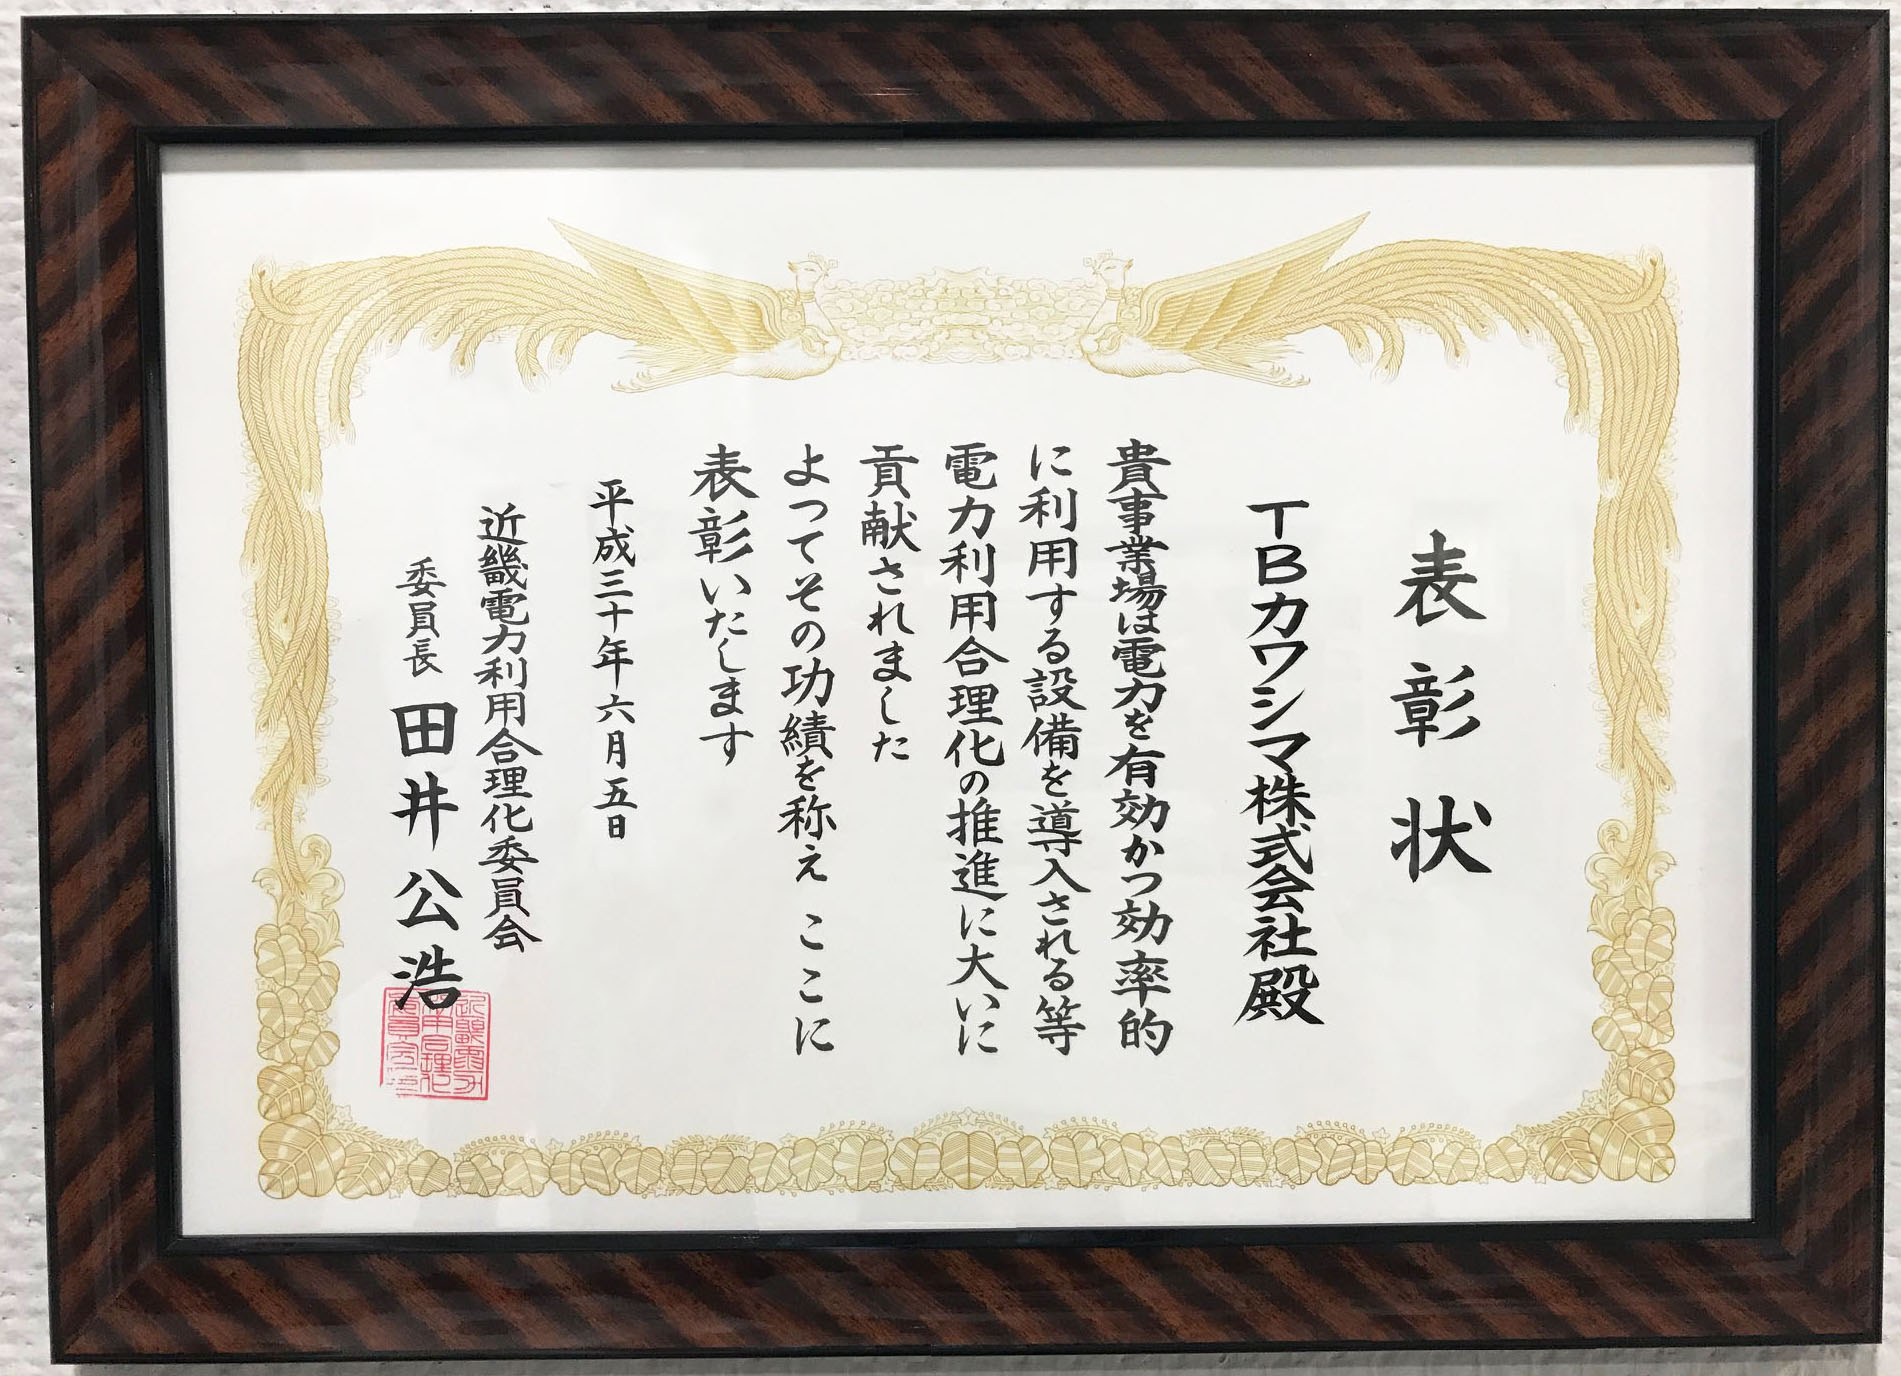 表彰状
TBカワシマ株式会社殿
貴事業場は電力を有効かつ効率的
に利用する設備を導入される等
電力利用合理化の推進に大いに
貢献されました
よってその功績を称え ここに
表彰いたします
平成三十年六月五日
近畿電力利用合理化委員会
委員長 田井公浩